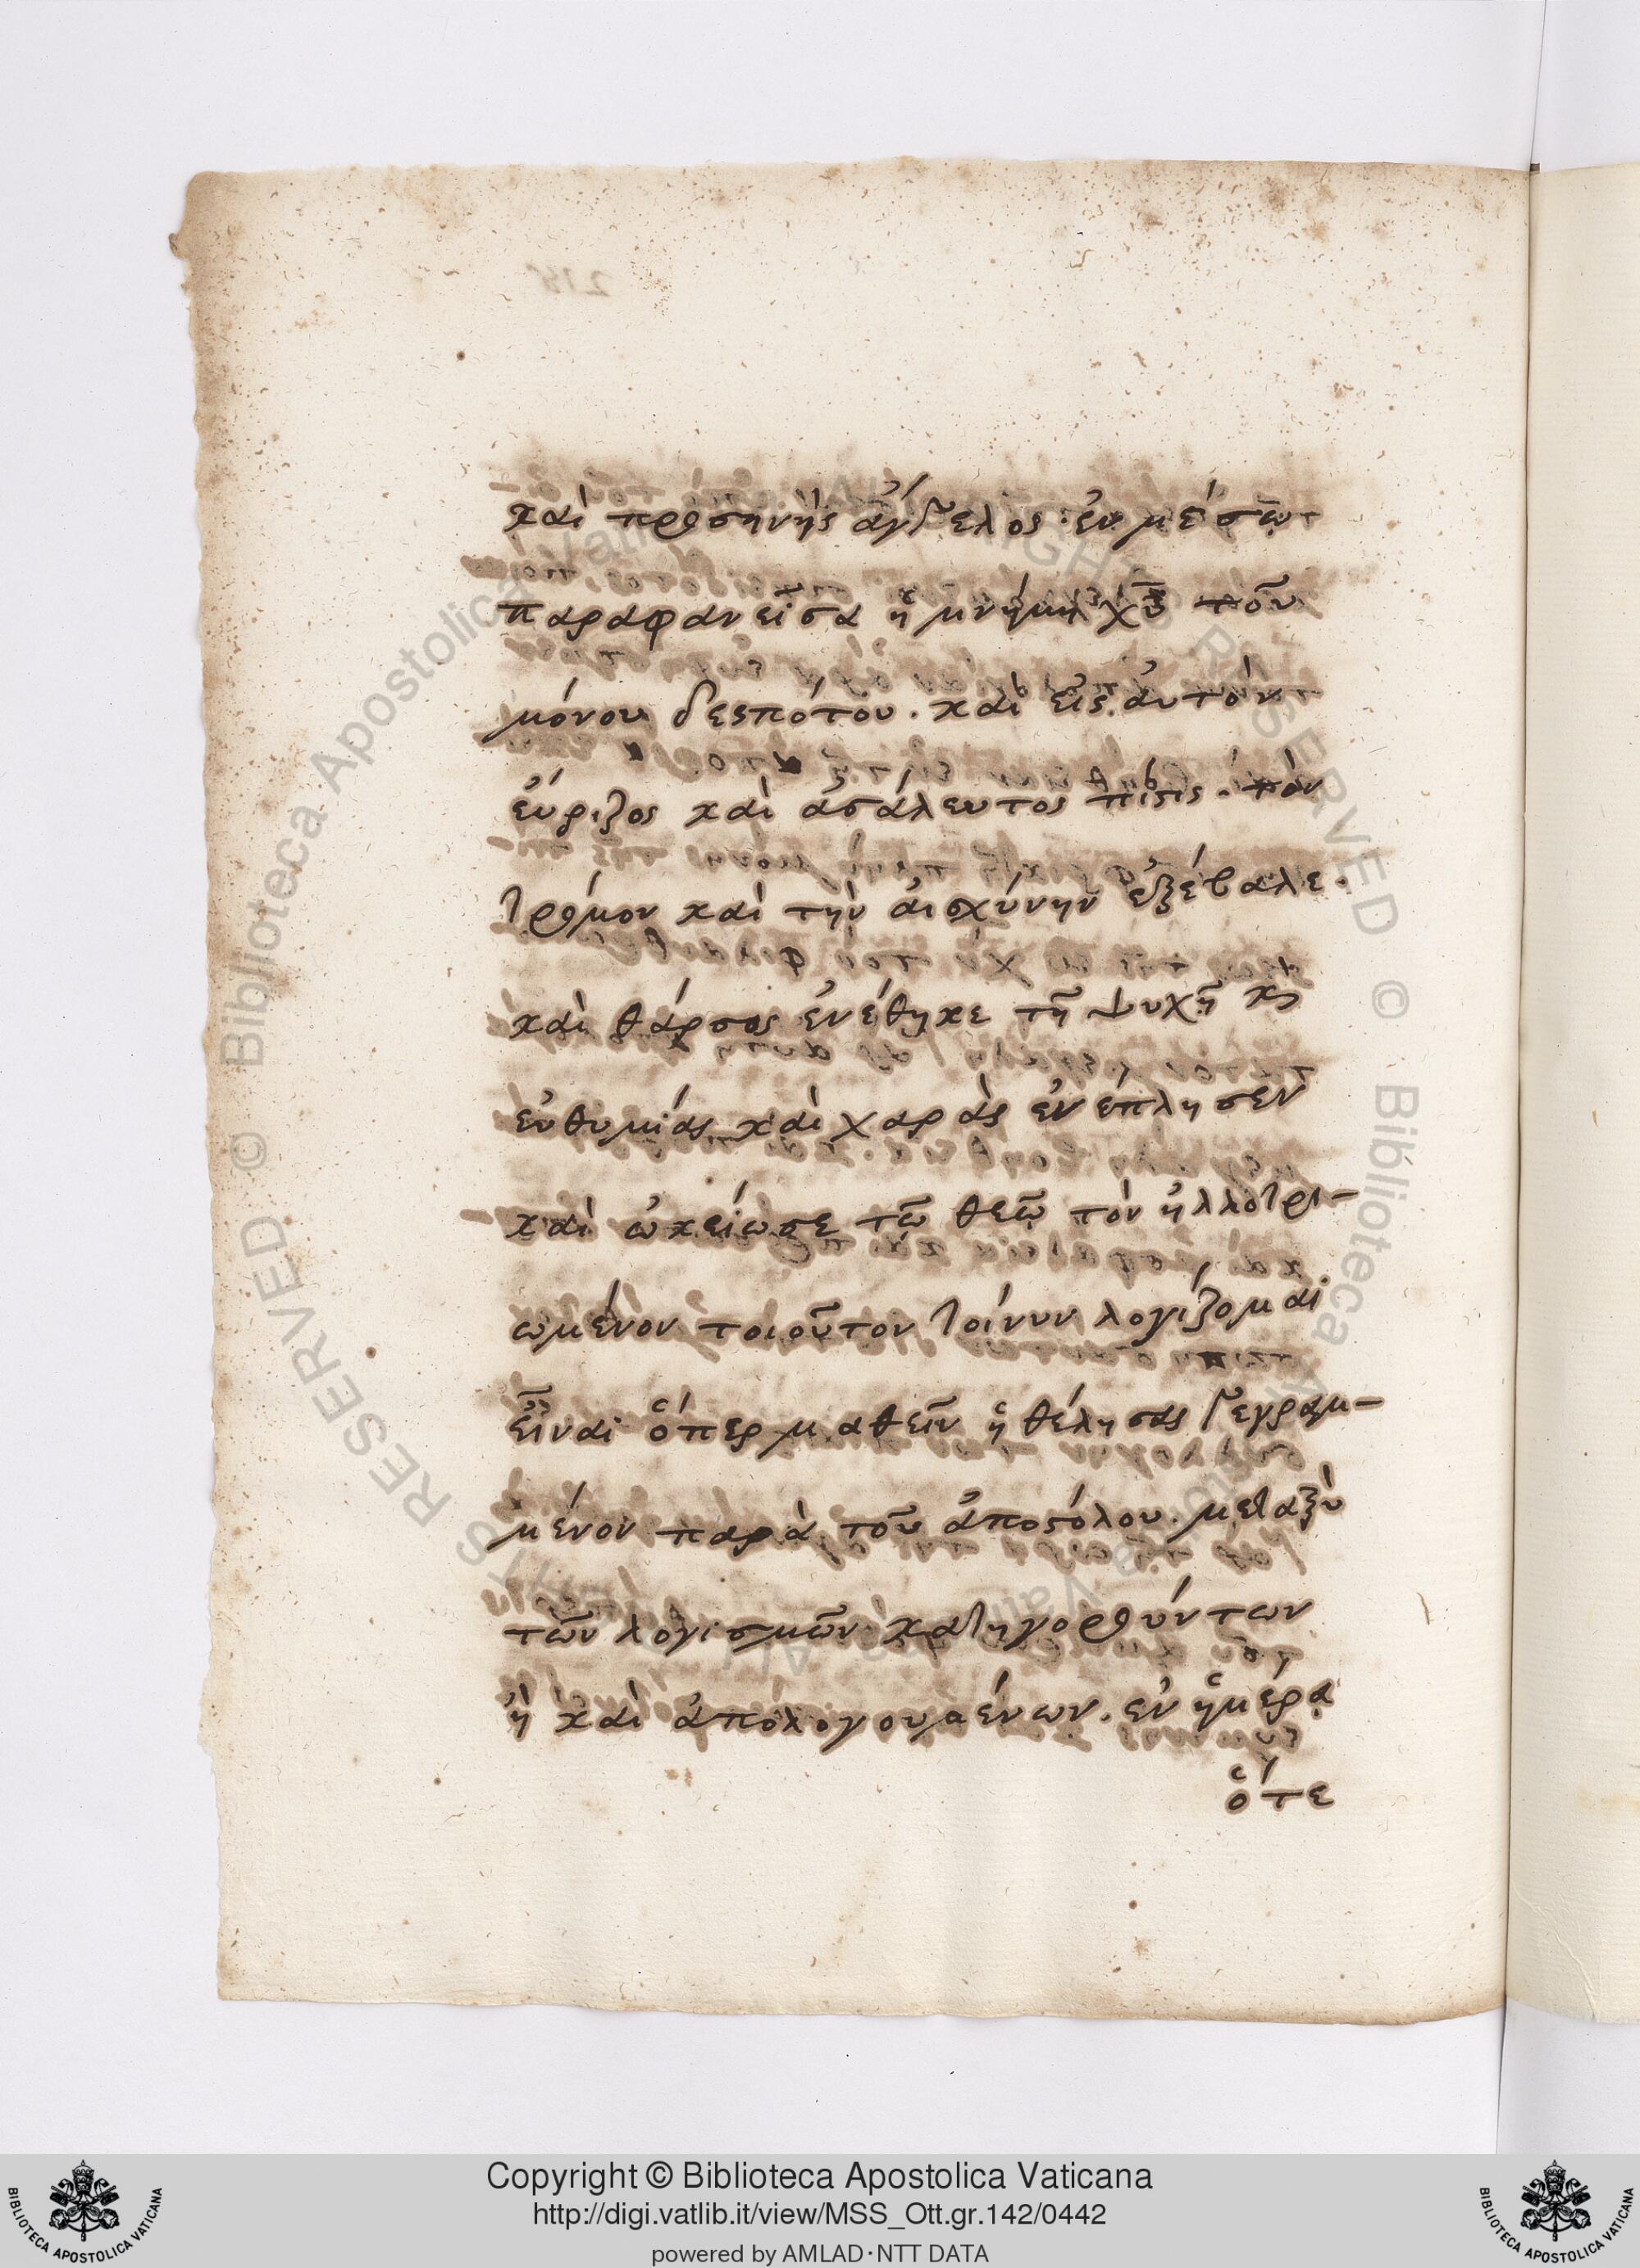 καὶ προσηνὴς ἄγγελος· ἐν μέσῳ
παραφανεῖσα ἡ μνήμη χῦ τοῦ
μόνου δεσπότου. καὶ εἰς ἀυτὸν
ἐύριζος καὶ ἀσάλευτος πίστις. τὸν
τρόμον καὶ τὴν ἀισχύνην ἐξέβαλε.
καὶ θάρσος ἐνέθηκε τῆ ψυχῆ κς
ἐυθυμίας καὶ χαρὰς ἐνέπλησεν
καὶ ὠκείωσε τῶ θεῶ τὸν ἠλλοτρι-
ωμένον τοιοῦτον τοίνυν λογίζομαι
εἶναι ὅπερ μαθεῖν ἠθέλησας γεγραμ-
μένον παρὰ τοῦ ἀποστόλου. μεταξὺ
τῶν λογισμῶν κατηγορούντων
ἢ καὶ ἀπολογουμένων. ἐν ἡμέρα
ὅτε
Copyright © Biblioteca Apostolica Vaticana
http://digi.vatlib.it/view/MSS_Ott.gr.142/0442
powered by AMLAD·NTT DATA
BIBLIOTECA APOSTOLICA VATICANA
BIBLIOTECA APOSTOLICA VATICANA